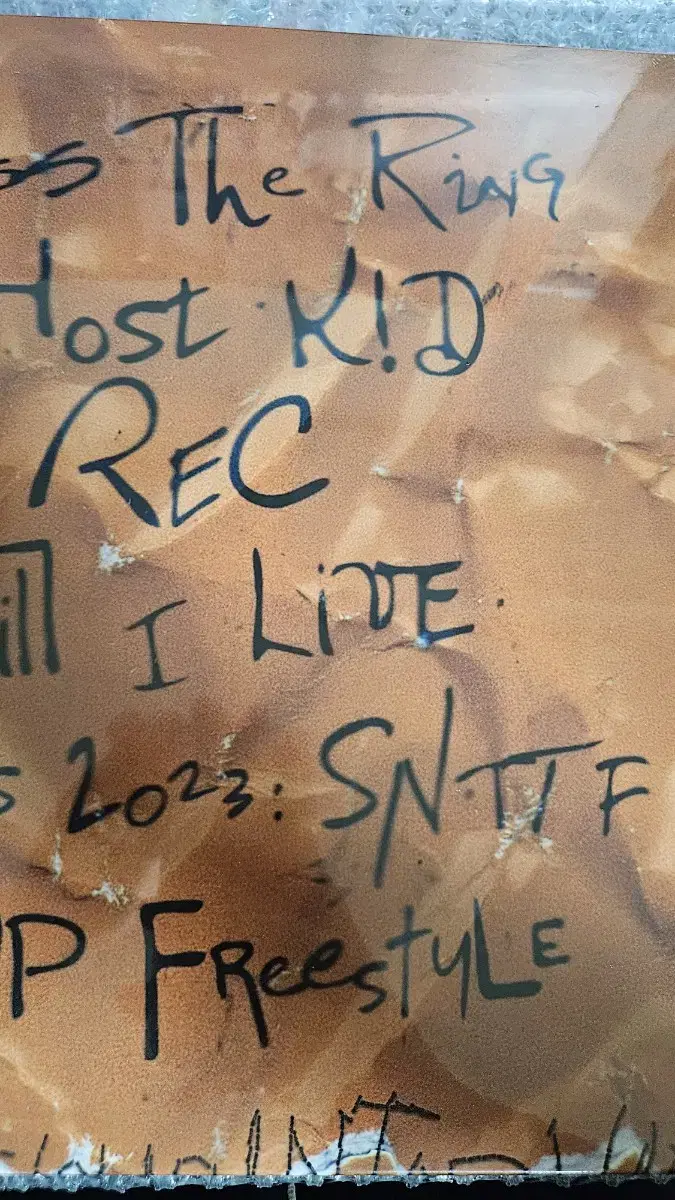 ss The Ring
Host K!D
REC
ill I LiVE.
s 2023: SNTTF
P FReestyLE